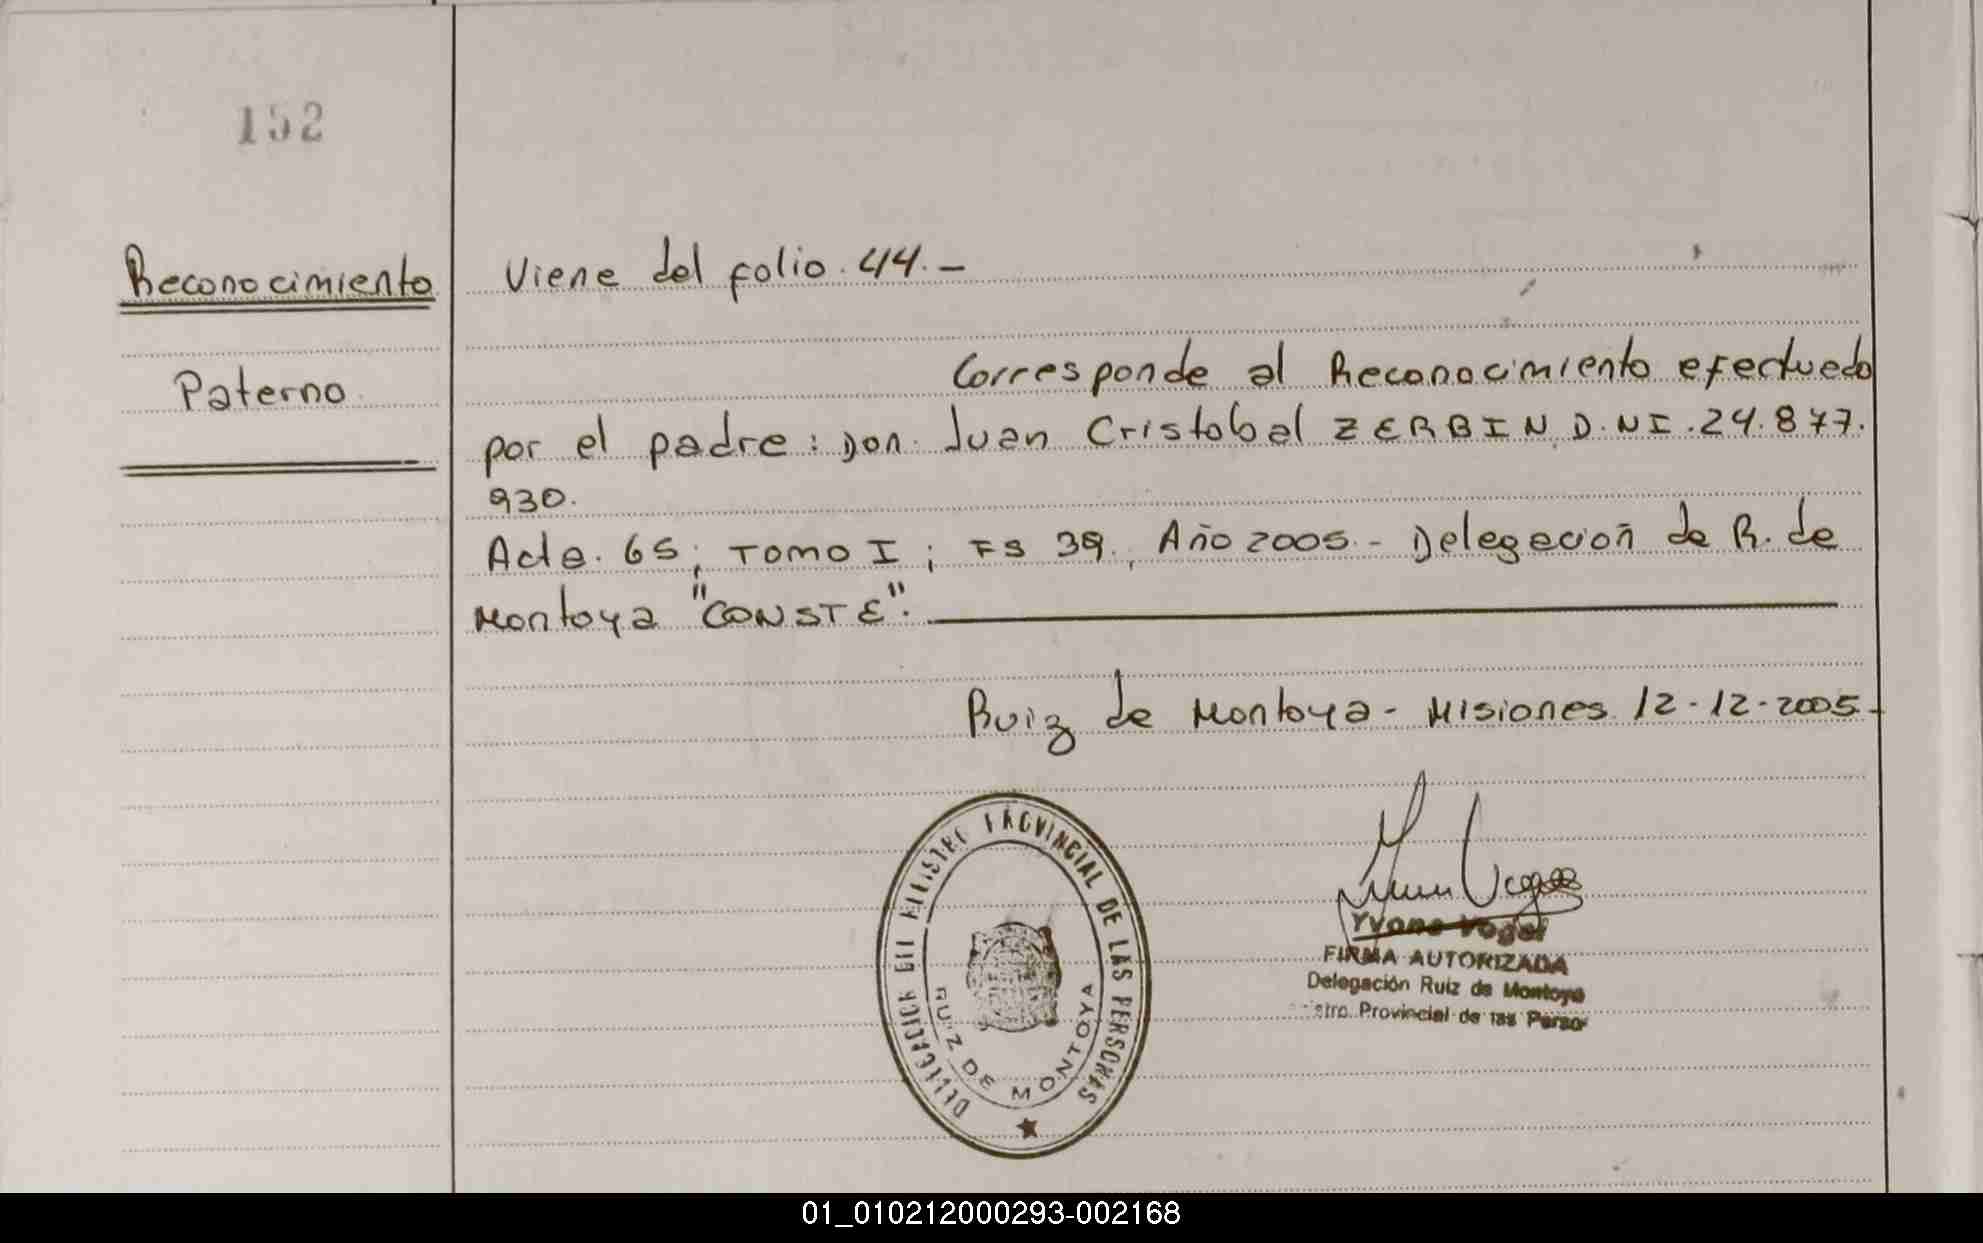 152
Reconocimiento
Paterno
Viene del folio. 44.-
Corresponde al Reconocimiento efectuado
por el padre: Don. Juan Cristobal ZERBIN D.NI.24.877.
930.
Acta. 65; TOMO I; FS 39, Año 2005.- Delegación de R. de
Montoya "CONSTE".
Ruiz de Montoya - Misiones 12-12-2005-
DELEGACION DEL REGISTRO PROVINCIAL DE LAS PERSONAS
RUIZ DE MONTOYA
Yvone Vogel
FIRMA AUTORIZADA
Delegación Ruiz de Montoya
stro Provincial de las Perso
01_010212000293-002168